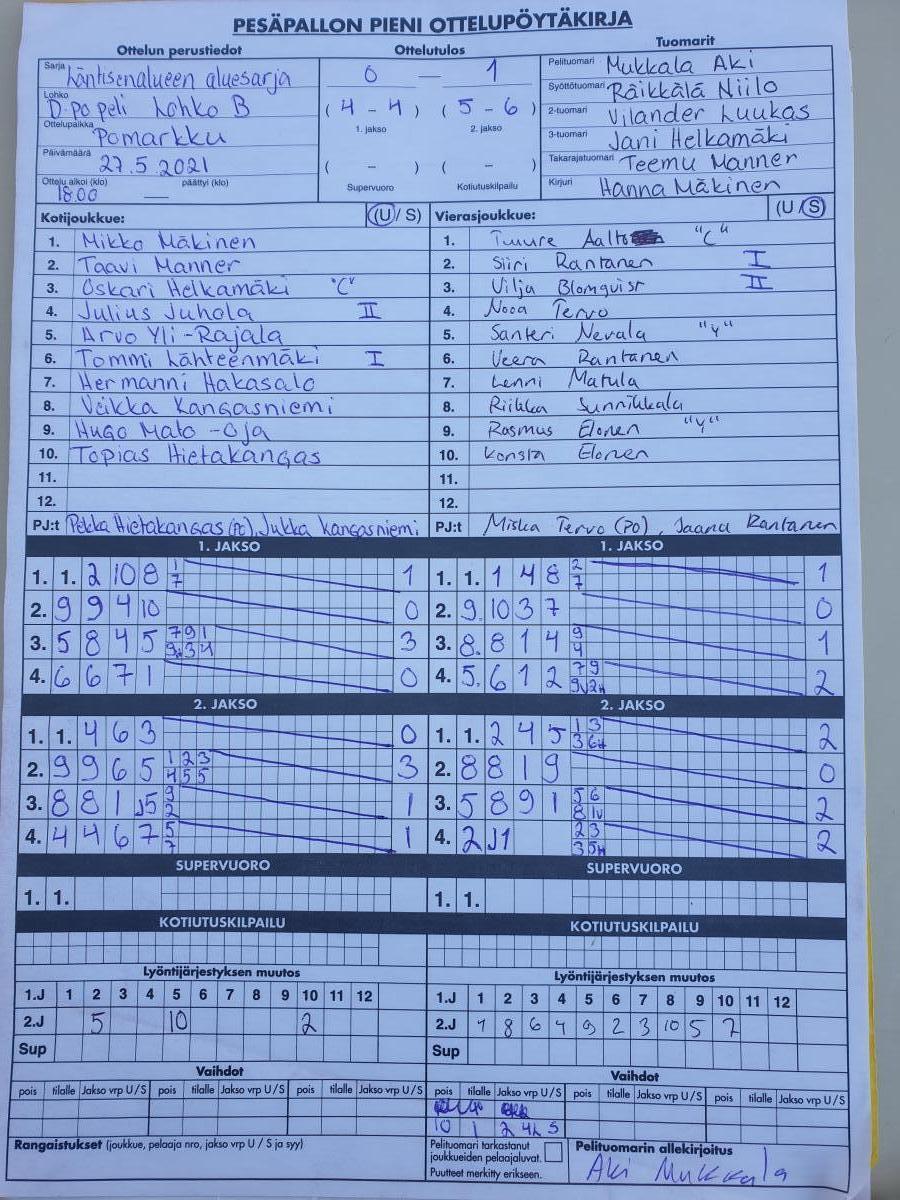 PESÄPALLON PIENI OTTELUPÖYTÄKIRJA
Ottelun perustiedot
Sarja Läntisenalueen aluesarja
Lohko D-po peli Lohko B
Ottelupaikka Pomarkku
Päivämäärä 27.5.2021
Ottelu alkoi (klo) päättyi (klo)
18.00 —
Ottelutulos
0 — 1
( 4 - 4 ) ( 5 - 6 )
1. jakso 2. jakso
( - ) ( - )
Supervuoro Kotiutuskilpailu
Tuomarit
Pelituomari Mukkala Aki
Syöttötuomari Räikkälä Niilo
2-tuomari Vilander Luukas
3-tuomari Jani Helkamäki
Takarajatuomari Teemu Manner
Kirjuri Hanna Mäkinen
Kotijoukkue: (U / S)
1. Mikko Mäkinen
2. Taavi Manner
3. Oskari Helkamäki "C"
4. Julius Juhola II
5. Arvo Yli-Rajala
6. Tommi Lähteenmäki I
7. Hermanni Hakasalo
8. Veikka Kangasniemi
9. Hugo Mato-Oja
10. Topias Hietakangas
11.
12.
PJ:t Pekka Hietakangas (PO), Jukka Kangasniemi
Vierasjoukkue: (U / S)
1. Tuure Aalto "C"
2. Siiri Rantanen I
3. Vilja Blomqvist II
4. Nooa Tervo
5. Santeri Nevala "Y"
6. Veera Rantanen
7. Lenni Matula
8. Riikka Sunnikkala
9. Rasmus Elonen "Y"
10. Konsta Elonen
11.
12.
PJ:t Miska Tervo (PO), Jaana Rantanen
1. JAKSO
1. 1. 2 10 8 1 7 1
2. 9 9 4 10 0
3. 5 8 4 5 7 9 1 9 3 4 3
4. 6 6 7 1 0
1. JAKSO
1. 1. 1 4 8 2 7 1
2. 9. 10 3 7 0
3. 8. 8 1 4 9 4 1
4. 5. 6 1 2 7 9 2
2. JAKSO
1. 1. 4 6 3 0
2. 9 9 6 5 1 2 3 4 5 5 3
3. 8 8 1 J5 9 2 1
4. 4 4 6 7 5 7 1
2. JAKSO
1. 1. 2 4 5 1 3 3 2
2. 8 8 1 9 0
3. 5 8 9 1 5 6 8 2
4. 2 J1 2 3 3 2
SUPERVUORO
1. 1.
SUPERVUORO
1. 1.
KOTIUTUSKILPAILU
KOTIUTUSKILPAILU
Lyöntijärjestyksen muutos
1.J 1 2 3 4 5 6 7 8 9 10 11 12
2.J 5 10 2
Sup
Lyöntijärjestyksen muutos
1.J 1 2 3 4 5 6 7 8 9 10 11 12
2.J 8 6 9 2 3 10 5 7
Sup
Vaihdot
pois tilalle Jakso vrp U / S pois tilalle Jakso vrp U / S pois tilalle Jakso vrp U / S
Vaihdot
pois tilalle Jakso vrp U / S pois tilalle Jakso vrp U / S pois tilalle Jakso vrp U / S
10 1 2 S
Rangaistukset (joukkue, pelaaja nro, jakso vrp U / S ja syy)
Pelituomari tarkastanut
joukkueiden pelaajaluvat.
Puutteet merkitty erikseen.
Pelituomarin allekirjoitus
Aki Mukkala